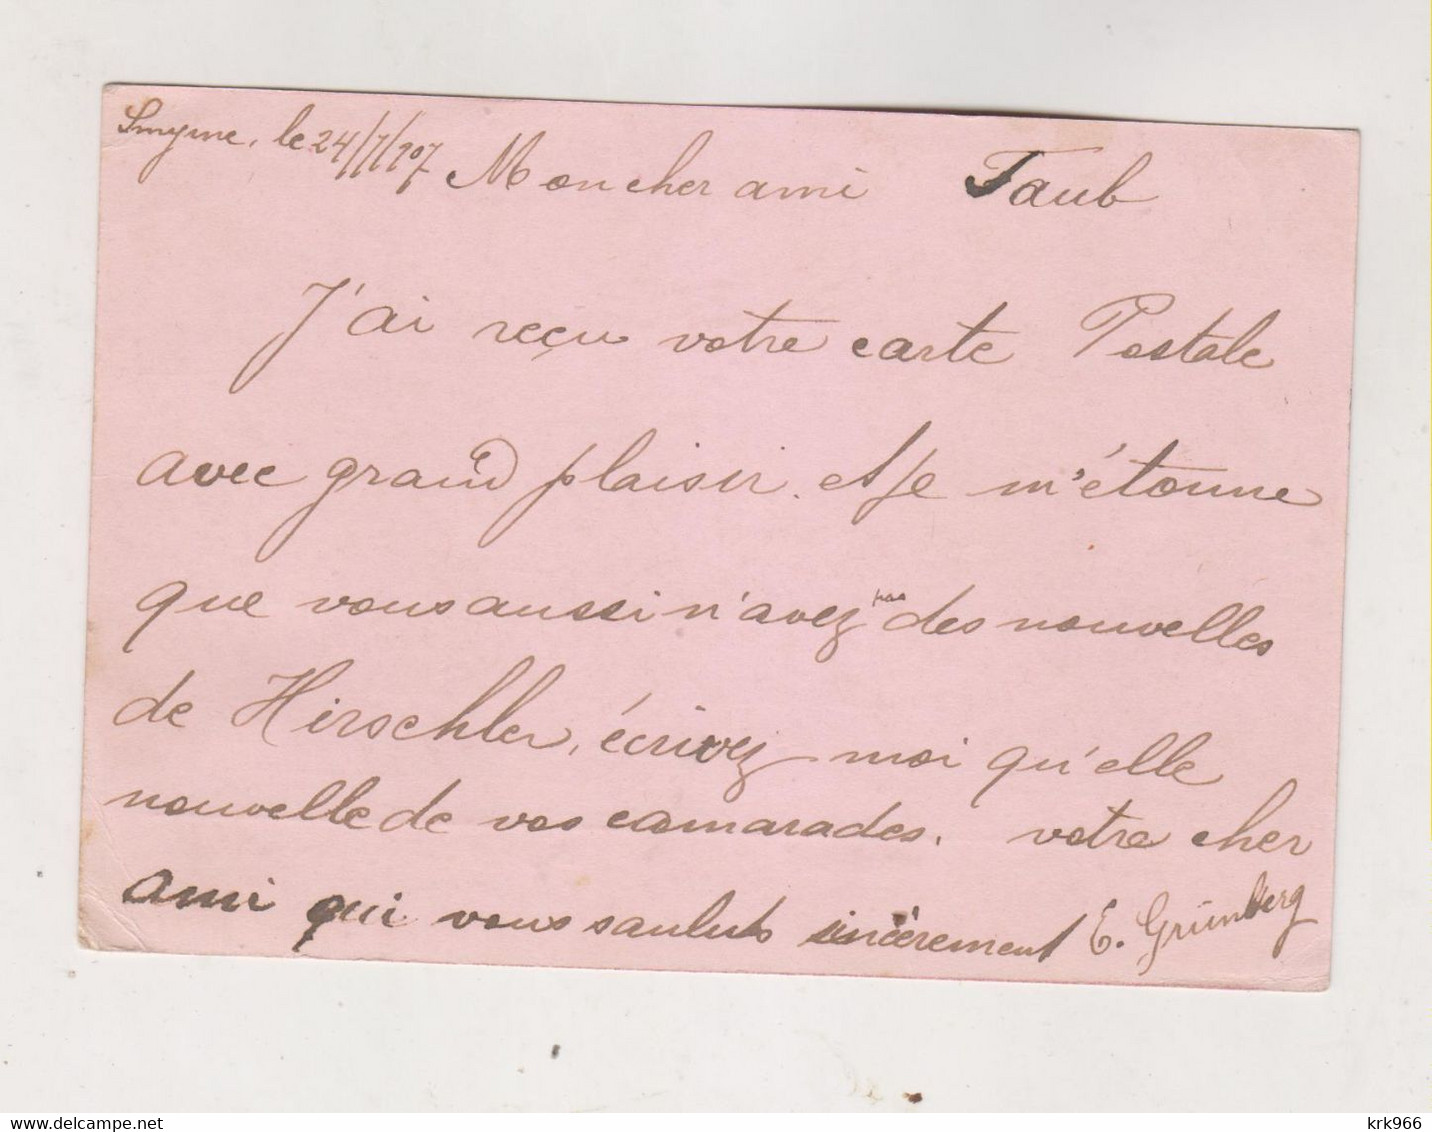 Smyrne, le 24/7/907 Mon cher ami Taub
J'ai reçu votre carte Postale
avec grand plaisir. et je m'étonne
que vous aussi n'avez pas des nouvelles
de Hirschler, écrivez moi qu'elle
nouvelle de vos camarades. votre cher
ami qui vous saluts sincèrement E. Grünberg
krk966